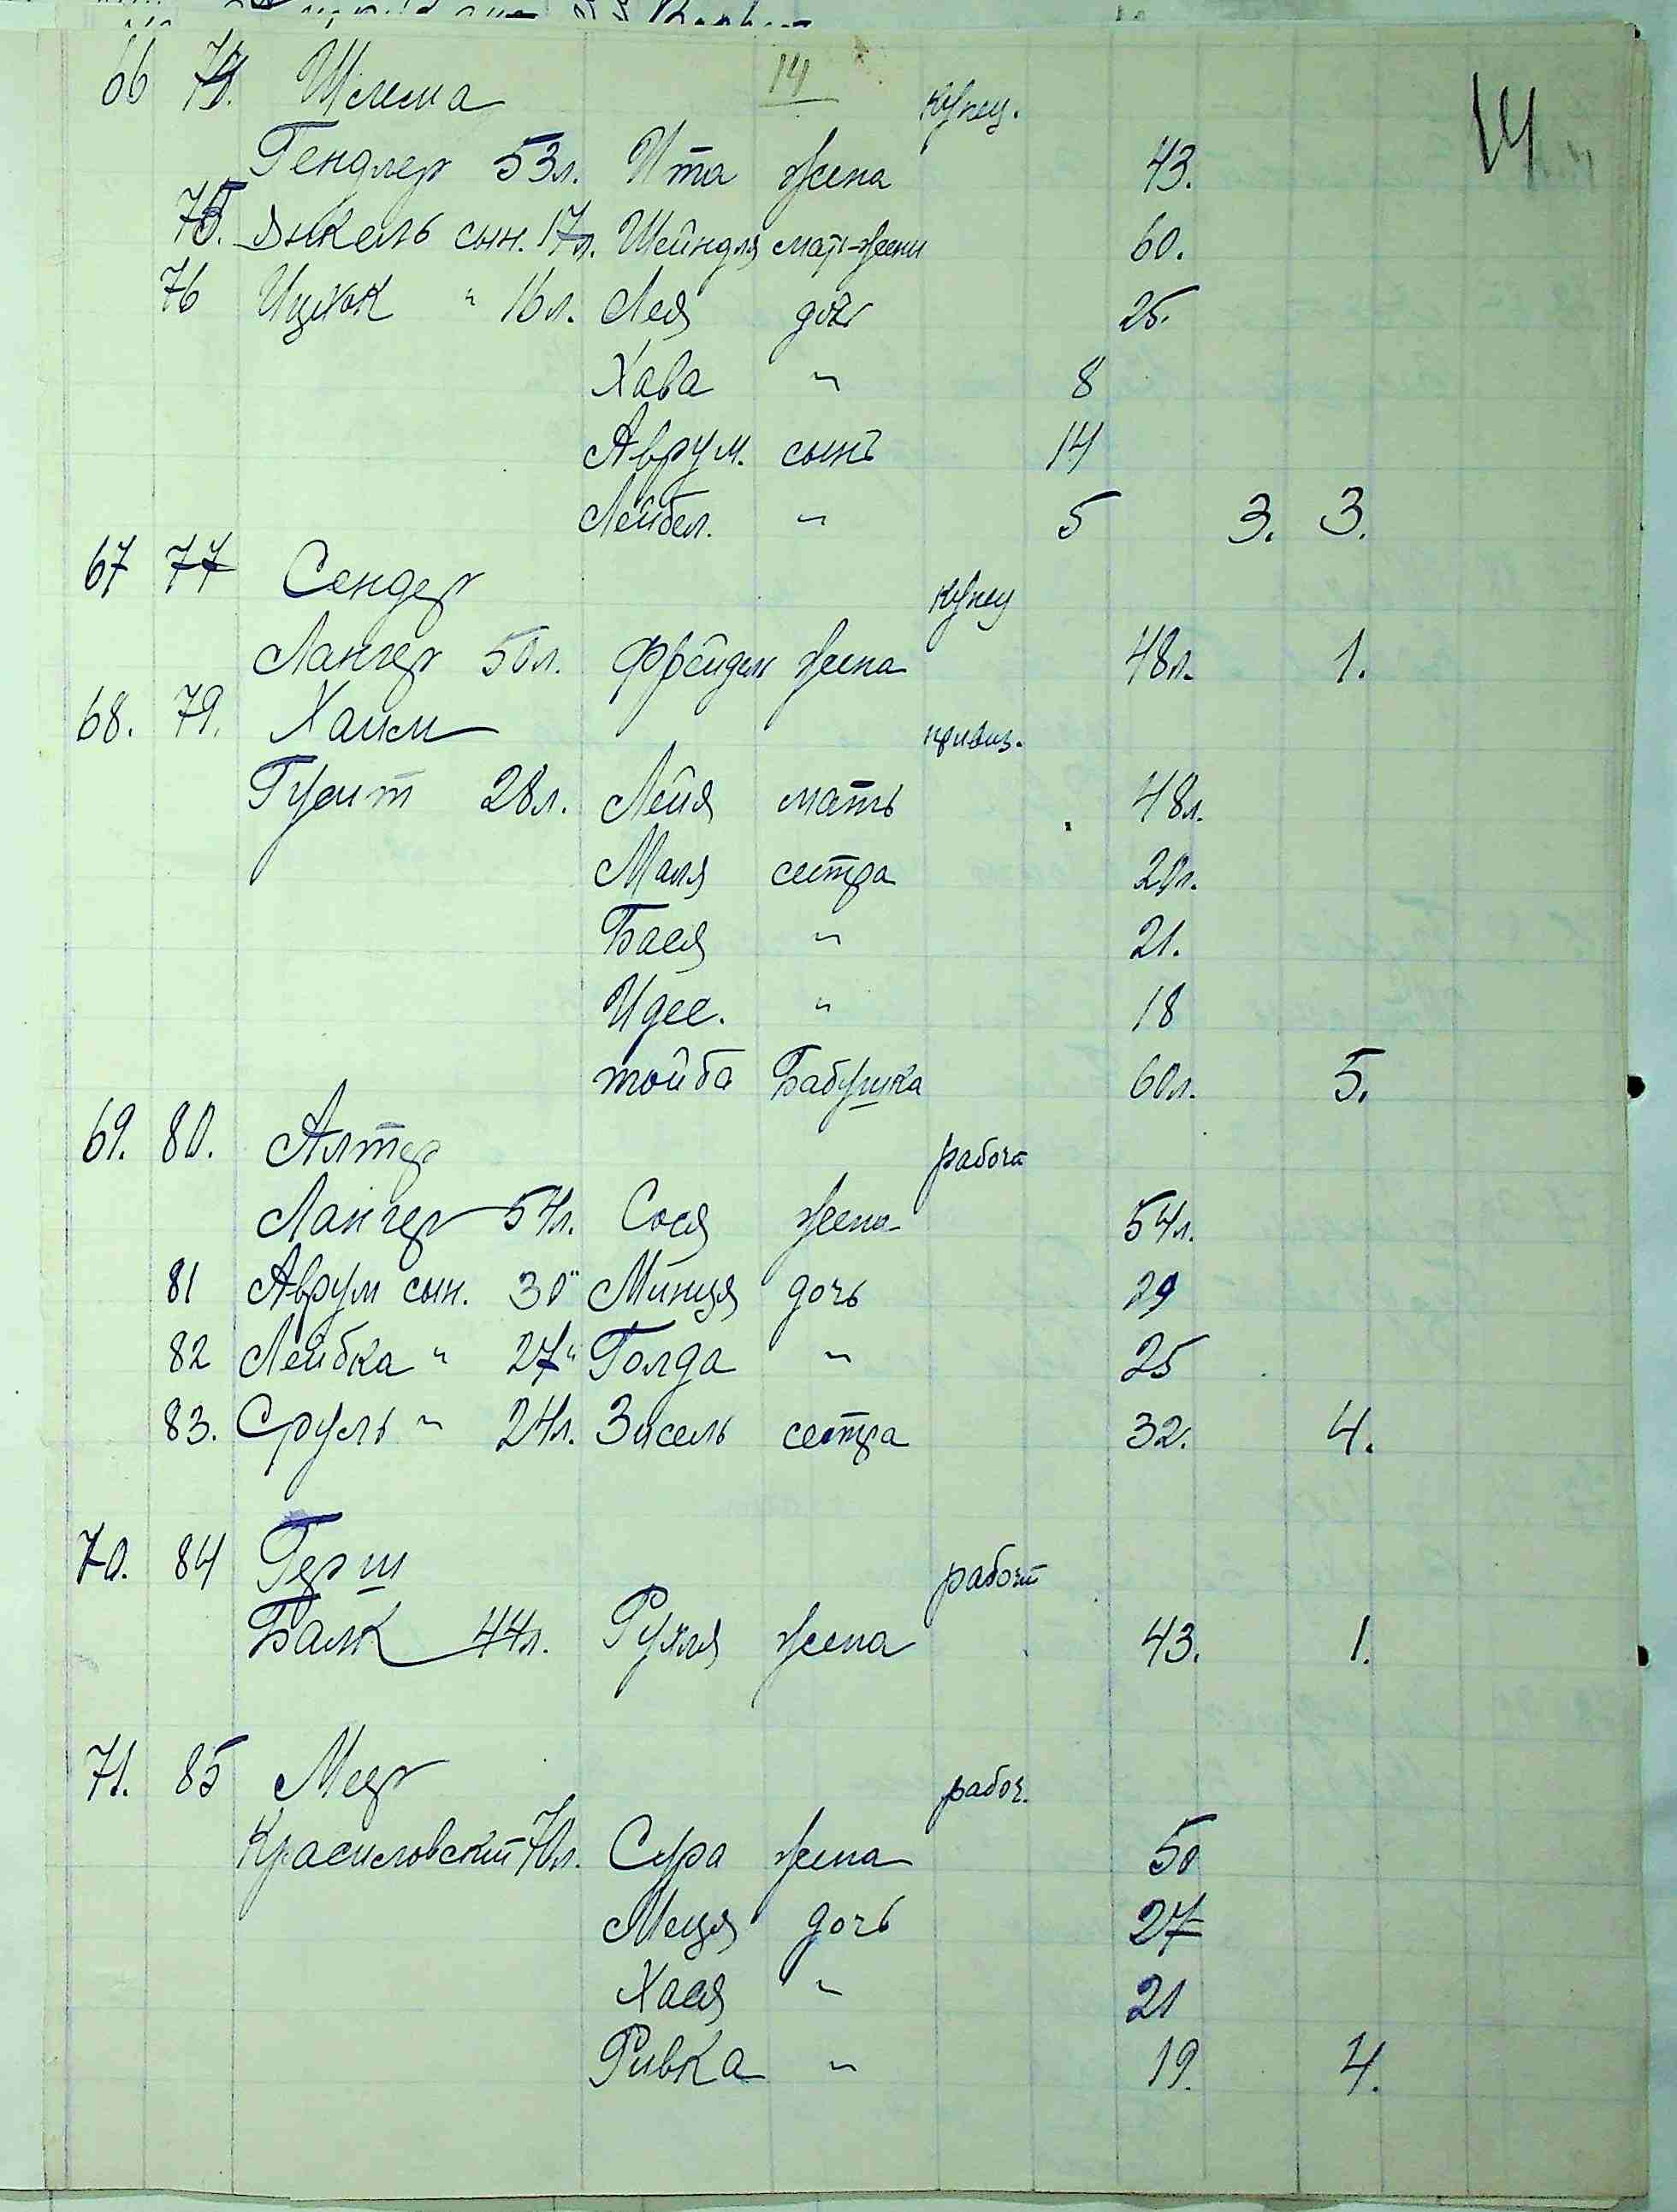 14
14
66 74. Шлема купец.
Гендлер 53л. Ита жена 43.
75. Дикель сын. 17л. Шейндля мать-жены 60.
76 Ицхок " 16л. Лея дочь 25.
Хава " 8
Аврум. сынъ 14
Лейбел. " 5 3. 3.
67 77 Сендер купец
Лангер 50л. Фрейдля жена 48л. 1.
68. 79. Хаим
Гурит 28л. Лейя мать 48л.
Маля сестра 20л.
Бася " 21.
Идес. " 18
тойба Бабушка 60л. 5.
69. 80. Алтер рабочи
Лангер 54л. Сося жена 54л.
81 Аврум сын. 30" Минця дочь 29
82 Лейбка " 27" Голда " 25
83. Сруль " 24л. Зисель сестра 32. 4.
70. 84 Герш рабочий
Балк 44л. Рухля жена 43. 1.
71. 85 Меер рабоч.
Красиловский 70л. Сура жена 50
Меця дочь 27
Хася " 21
Ривка " 19. 4.